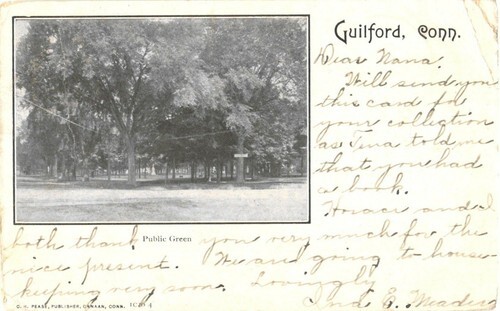 Guilford, Conn.
Dear Nana.
Will send you
this card for
your collection
as Tina told me
that you had
a book.
Horace and I
both thank you very much for the
Public Green
nice present. We are going to house-
keeping very soon. Lovingly
C. H. PEASE, PUBLISHER, CANAAN, CONN.
E. Meadow